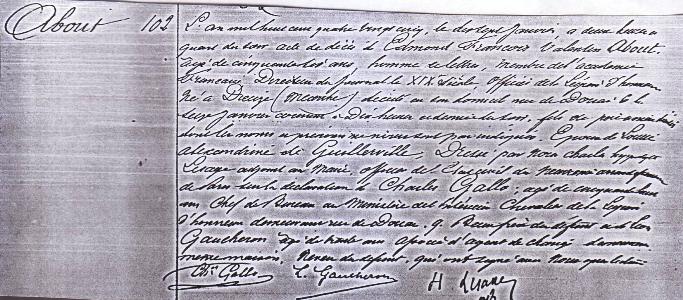 About 102 L'an mil huit cent quatre vingt cinq, le dix sept Janvier, à deux heures
quart du soir acte de décès de Edmond François Valentin About
âgé de cinquante six ans, homme de lettres, membre de l'académie
française, Directeur du Journal le XIXe Siècle officier de la Légion d'honneur
né à Dieuze (Meurthe) décédé en son domicile rue de Douai 6 le
seize janvier courant à dix heures et demie du soir, fils de père et mère
dont les noms et prénoms ne nous sont pas indiqués. Époux de Louise
Alexandrine de Guillerville, Dressé par nous Charles
Lesage adjoint au Maire, officier de l'Etat civil du neuvième arrondissement
de Paris sur la déclaration de Charles Galle, âgé de cinquante
ans Chef de Bureau au Ministère de l'intérieur Chevalier de la Légion
d'honneur demeurant rue de Douai, 9. Beau frère du défunt et de Léon
Gaucheron âgé de trente ans associé d'agent de change demeurant
même maison, Neveu du défunt, qui ont signé avec Nous après lecture
Ch. Galle L. Gaucheron H Lesage